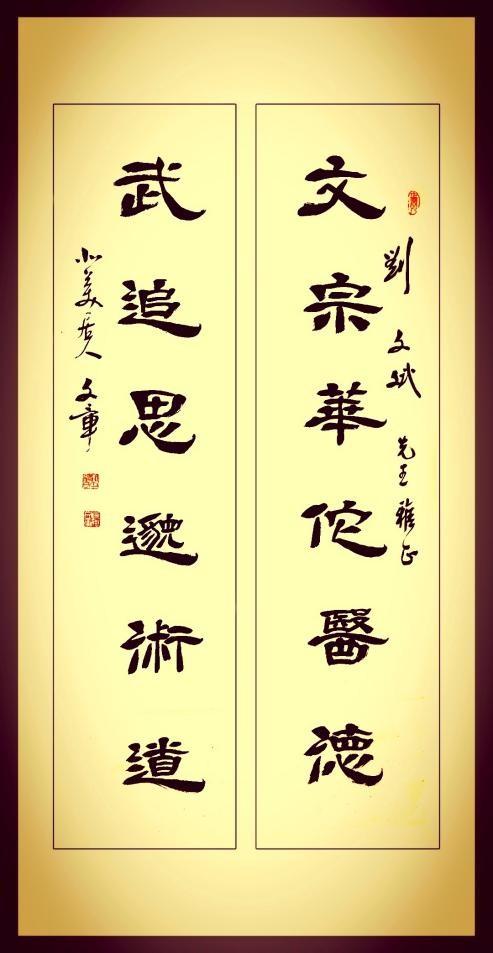 文宗華佗醫德
劉文斌先生雅正
武追思邈術道
小美居人文章